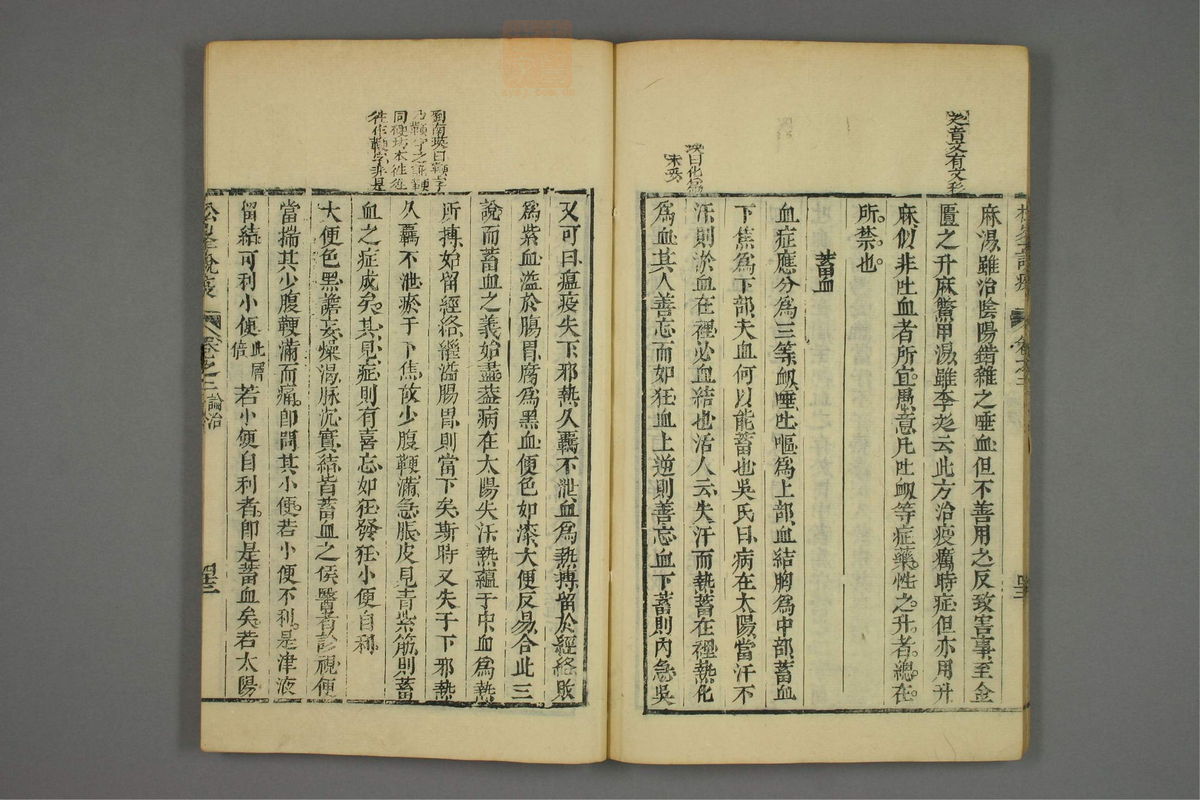 麻湯雖治陰陽錯雜之唾血但不善用之反致害事至金
匱之升麻鱉甲湯雖李彣云此方治疫癘時症但亦用升
麻似非吐血者所宜愚意凡吐衂等症藥性之升者總在
所禁也
蓄血
血症應分爲三等衂唾吐嘔爲上部血結胸爲中部蓄血
下焦爲下部夫血何以能蓄也吳氏曰病在太陽當汗不
汗則淤血在裡必血結也活人云失汗而熱蓄在裡熱化
爲血其人善忘而如狂血上逆則善忘血下蓄則內急吳
又可曰瘟疫失下邪熱久羈不泄血爲熱搏留於經絡敗
爲紫血溢於腸胃腐爲黑血便色如漆大便反易合此三
說而蓄血之義始盡蓋病在太陽失汗熱蘊于中血爲熱
所搏始留經絡繼溢腸胃則當下矣斯時又失于下邪熱
久羈不泄瘀于下焦故少腹鞕滿急脹皮見青紫筋則蓄
血之症成矣其見症則有喜忘如狂發狂小便自利
大便色黑譫妄燥渴脉沉實結皆蓄血之侯醫者診視便
當揣其少腹鞕滿而痛即問其小便若小便不利是津液
留結可利小便 此層
倍 若小便自利者即是蓄血矣若太陽
松峯說疫 卷之三 論治